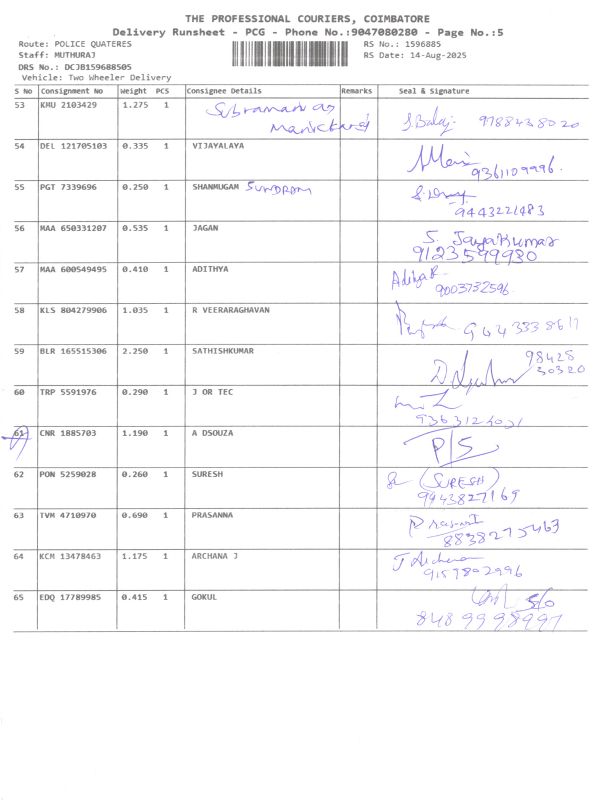 THE PROFESSIONAL COURIERS, COIMBATORE
Delivery Runsheet - PCG - Phone No.:9047080280 - Page No.:5
Route: POLICE QUATERES RS No.: 1596885
Staff: MUTHURAJ RS Date: 14-Aug-2025
DRS No.: DCJB159688505
Vehicle: Two Wheeler Delivery
S No Consignment No Weight PCS Consignee Details Remarks Seal & Signature
53 KMU 2103429 1.275 1 Subramanias
Manickard S. Balaji 9788438020
54 DEL 121705103 0.335 1 VIJAYALAYA
9361109996.
55 PGT 7339696 0.250 1 SHANMUGAM SUNDRAM
9443221483
56 MAA 650331207 0.535 1 JAGAN S. Jayakumar
9123599930
57 MAA 600549495 0.410 1 ADITHYA Aditya R
9003732596
58 KLS 804279906 1.035 1 R VEERARAGHAVAN
59 BLR 165515306 2.250 1 SATHISHKUMAR 98428
30320
60 TRP 5591976 0.290 1 J OR TEC
61 CNR 1885703 1.190 1 A DSOUZA P/S
62 PON 5259028 0.260 1 SURESH (SURESH)
9443827169
63 TVM 4710970 0.690 1 PRASANNA Prasant
8838275463
64 KCM 13478463 1.175 1 ARCHANA J J Archana
9159802996
65 EDQ 17789985 0.415 1 GOKUL S/o
8489998997